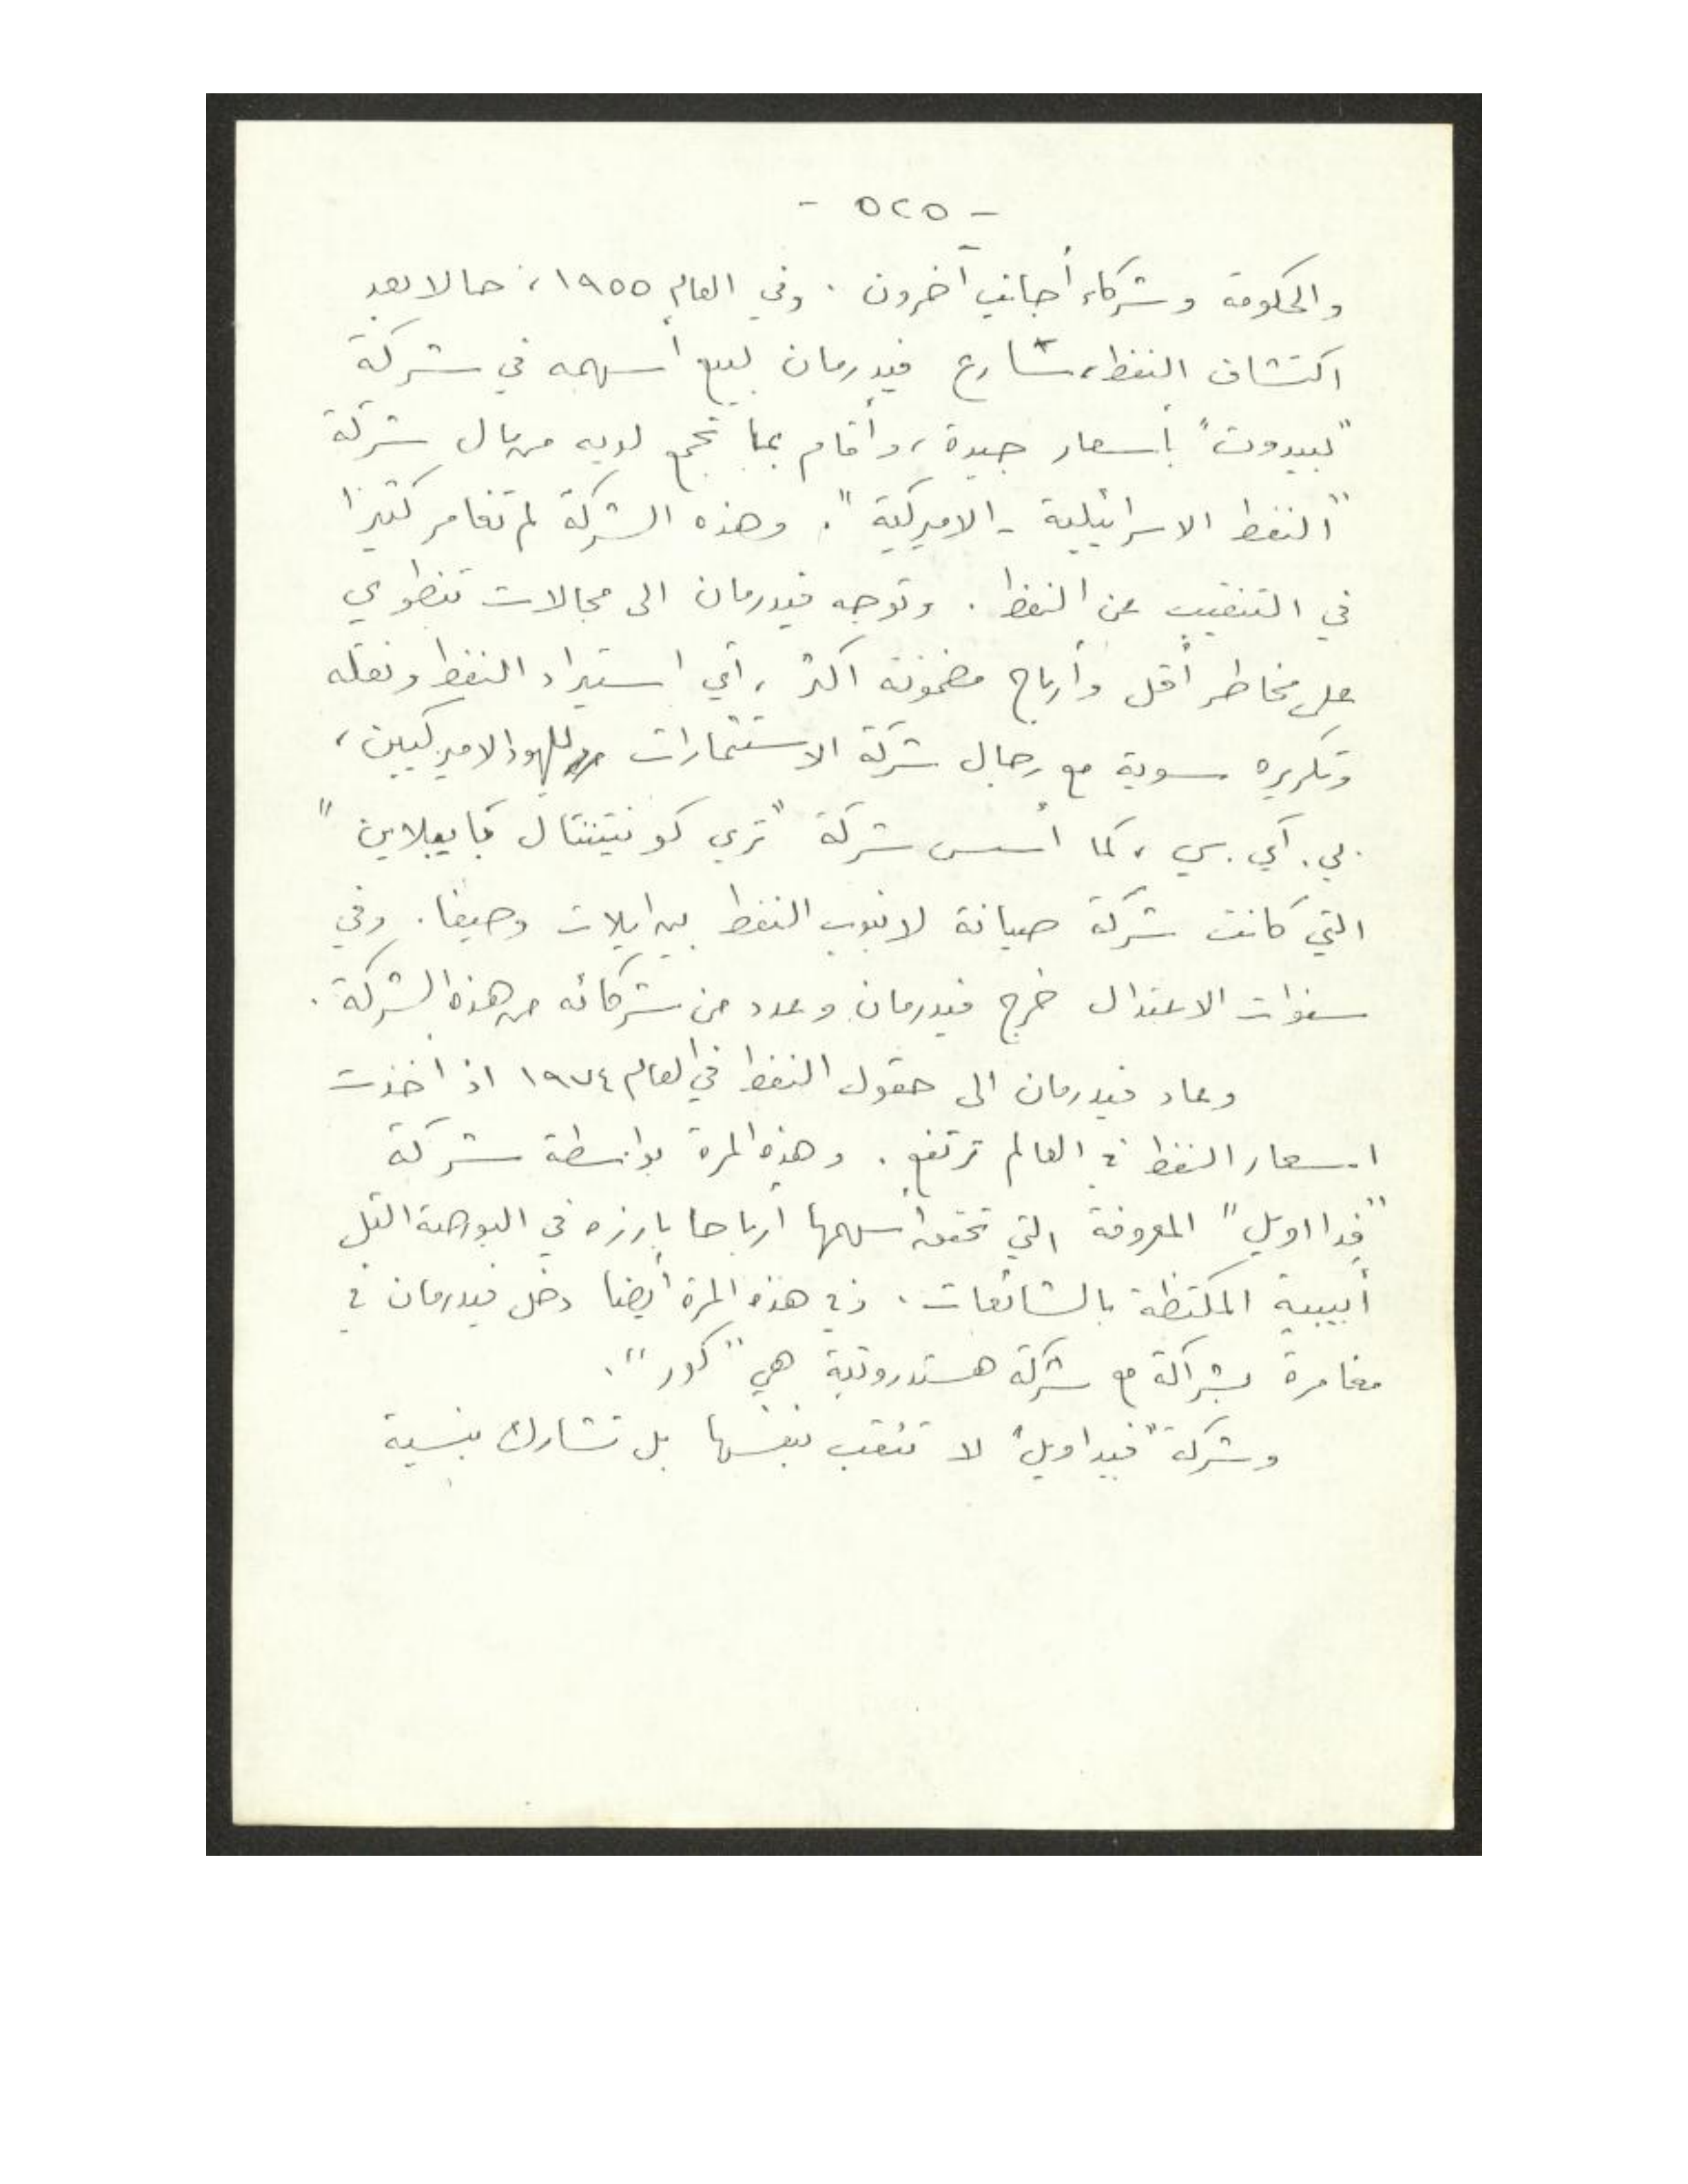 - ٥٢٥ -
والحكومة وشركاء أجانب آخرون . وفي العام ١٩٥٥ ، حالا بعد
اكتشاف النفط ، سارع فيدرمان لبيع أسهمه في شركة
"لبيدوت" بأسعار جيدة ، وأقام بما تجمع لديه من مال شركة
"النفط الاسرائيلية - الاميركية" . وهذه الشركة لم تغامر كثيرا
في التنقيب عن النفط . وتوجه فيدرمان الى مجالات تنطوي
على مخاطر أقل وأرباح مضمونة اكثر ، أي استيراد النفط ونقله
وتكريره سوية مع رجال شركة الاستثمارات لليهود الاميركيين ،
بي . آي . سي ، كما أسس شركة "تري كونتيننتال بايبلاين"
التي كانت شركة صيانة لانبوب النفط بين ايلات وحيفا . وفي
سنوات الاعتدال خرج فيدرمان وعدد من شركائه من هذه الشركة .
وعاد فيدرمان الى حقول النفط في العام ١٩٧٤ اذ اخذت
اسعار النفط في العالم ترتفع . وهذه المرة بواسطة شركة
"فدا اويل" المعروفة التي تحقق أسهمها أرباحا بارزه في البورصة التل
أبيبية المكتظة بالشائعات . وفي هذه المرة أيضا دخل فيدرمان في
مغامرة بشراكة مع شركة هستدروتية هي "كور" .
وشركة "فيدا اويل" لا تنقب بنفسها بل تشارك بنسبة